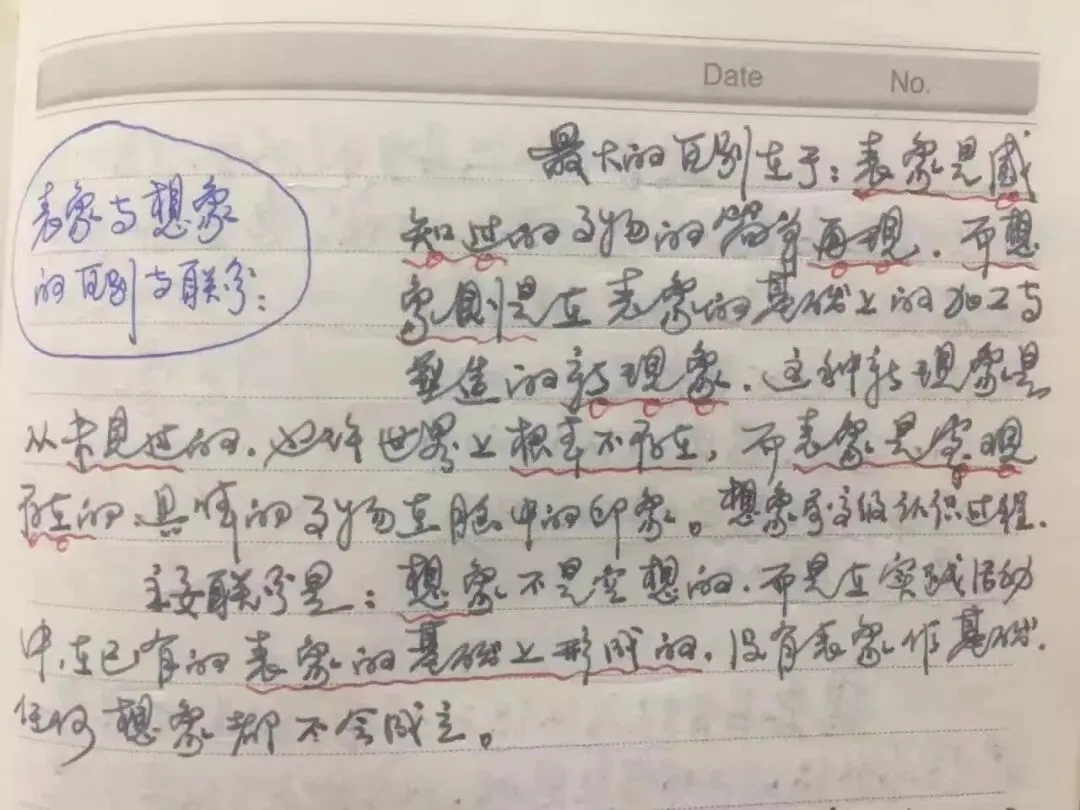 Date No.
表象与想象
的区别与联系:
最大的区别在于:表象是感
知过的事物的简单再现.而想
象则是在表象的基础上的加工与
塑造的新现象.这种新现象是
从未见过的.也许世界上根本不存在,而表象是实现
存在的具体的事物在脑中的印象。想象系高级认识过程.
主要联系是:想象不是空想的.而是在实践活动
中.在已有的表象的基础上形成的.没有表象作基础.
任何想象都不会成立。